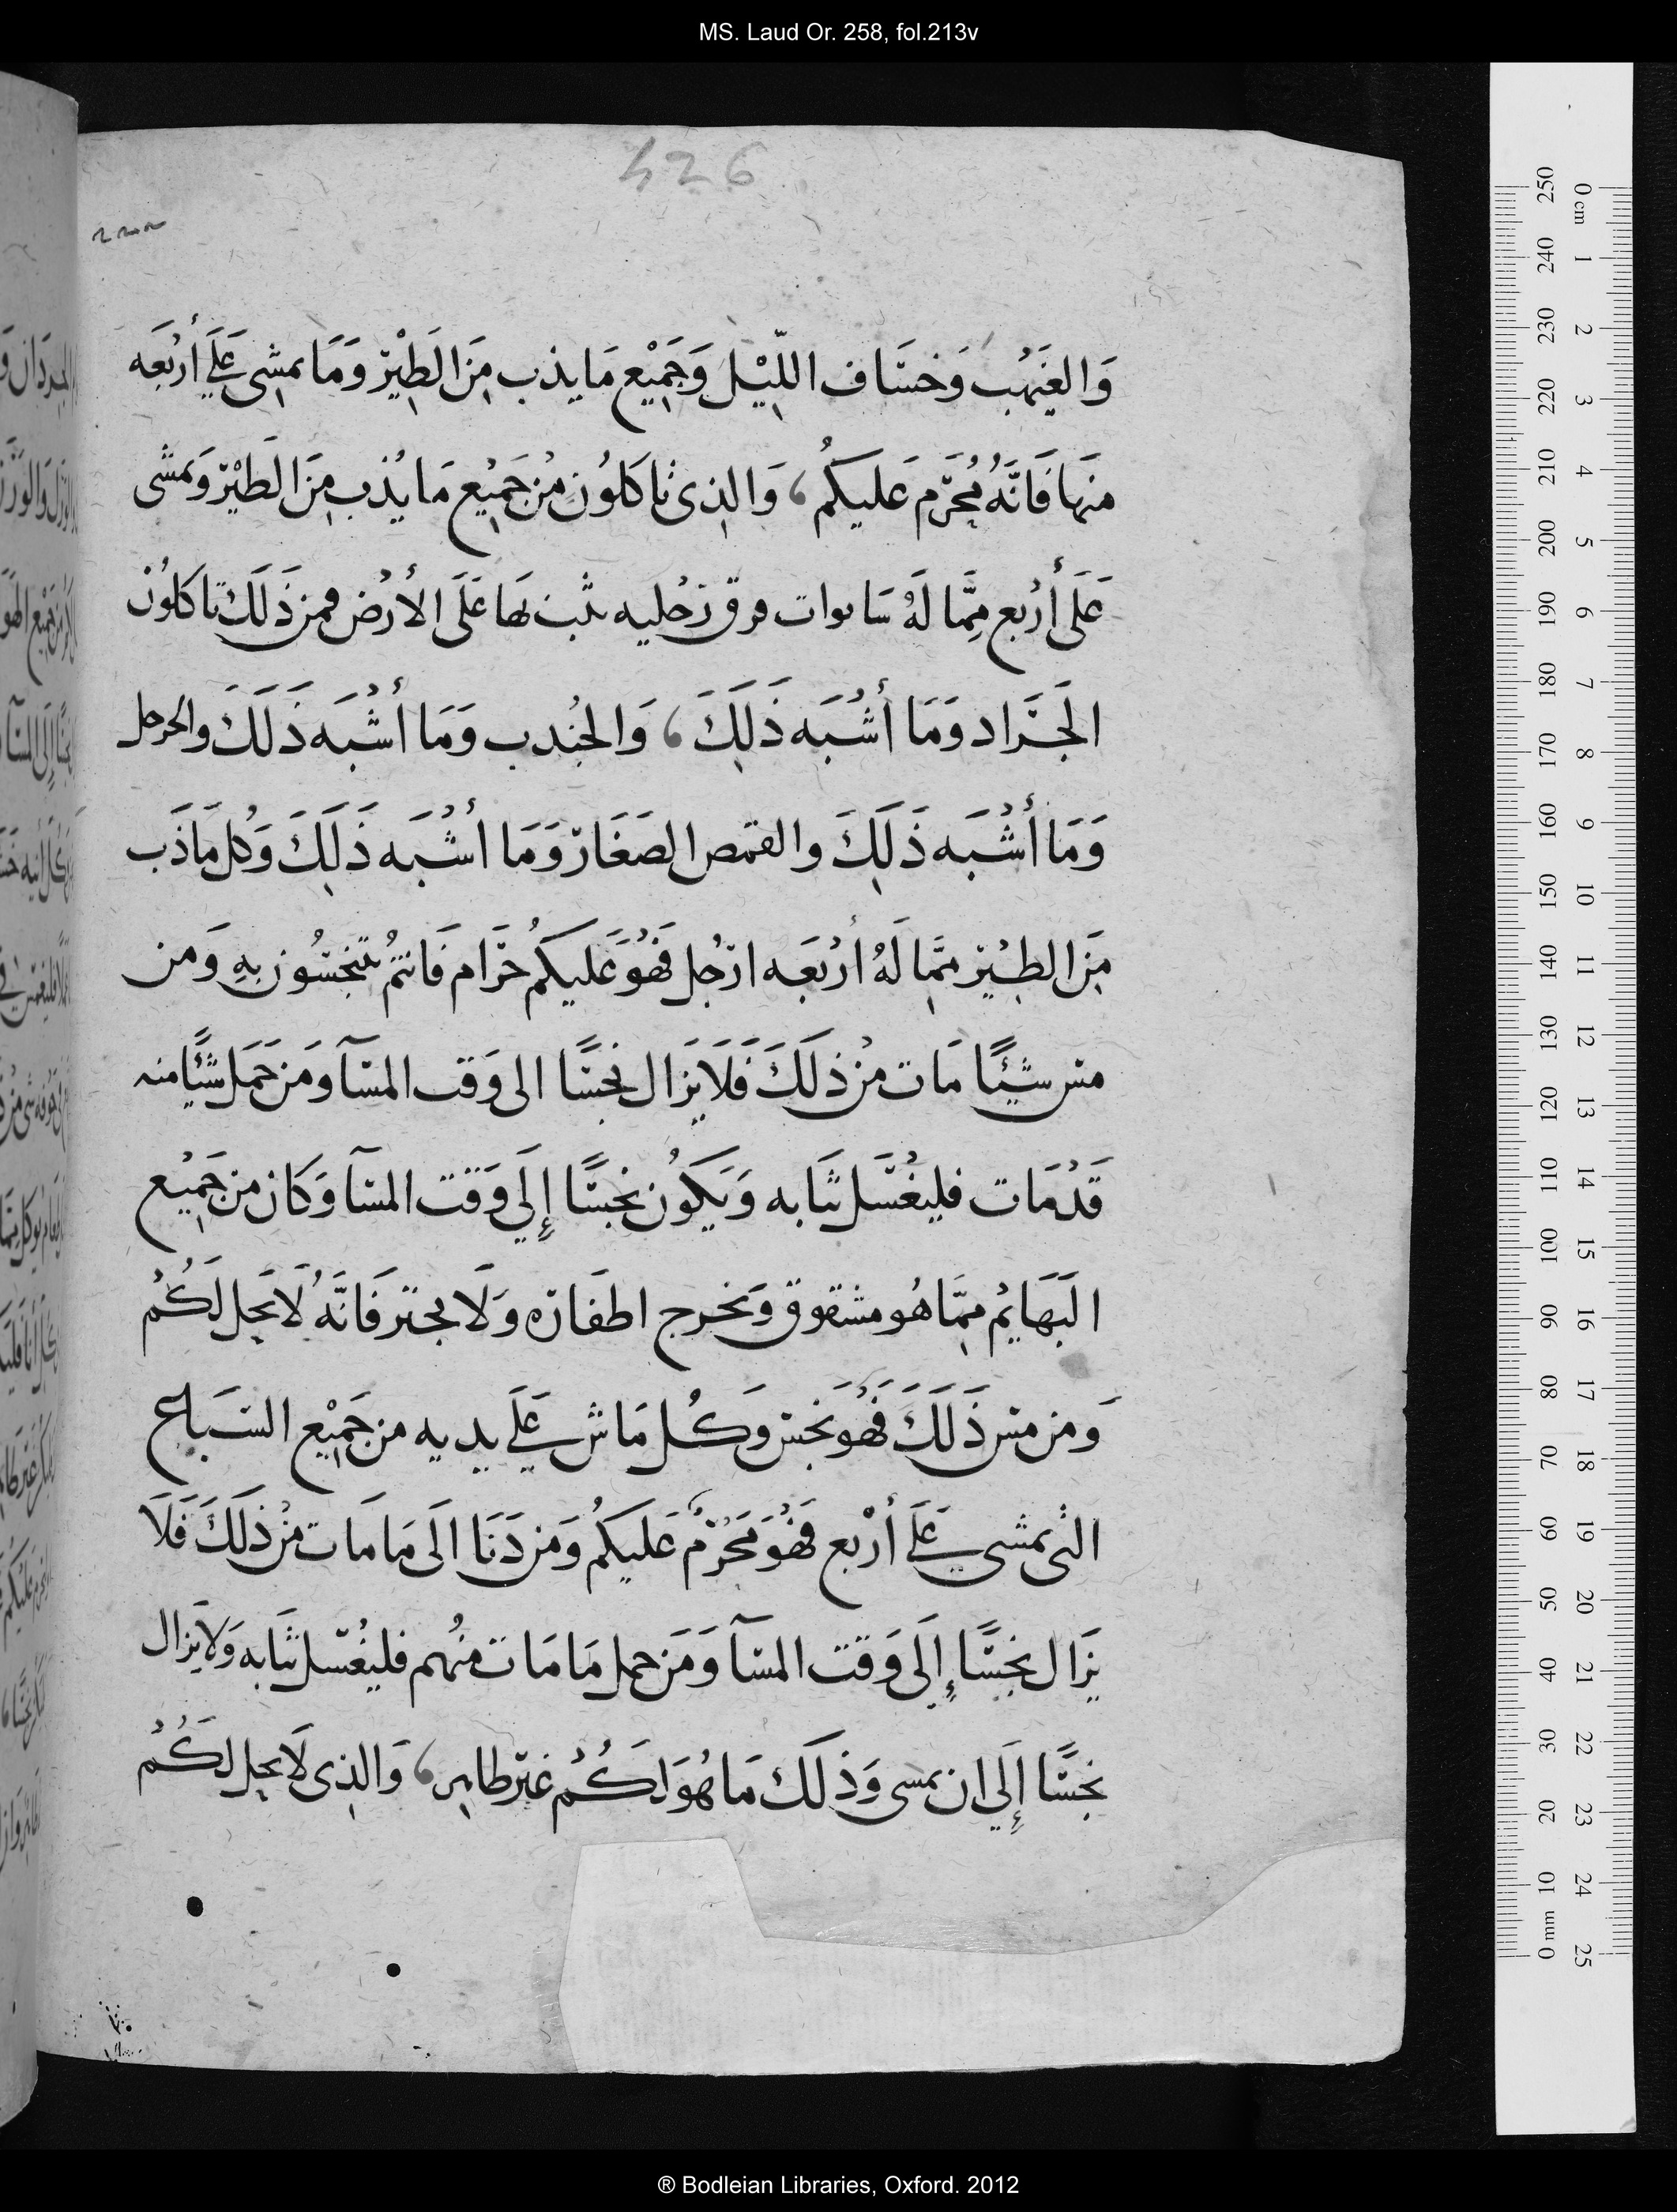 MS. Laud Or. 258, fol.213v
426
وَالغَيهَب وَخسَّاف اللّيْل وَجَمِيْع مَا يذب مِنَ الطَيْرّ وَمَا يمشِى عَلَي أربَعَه
منهَا فَانَّهُ مُحَرَّم عَليكُم، وَالذِى تاكلُون مِن جَمِيْع مَا يُذب مِنَ الطَيْرّ وَيمشى
عَلَى أرُبع مِمَّا لَهُ سَا فوق رَحُليه يثب لهَا عَلَى الأرُض فمن ذَلَك تاكلوُن
الجَرَاد وَمَا أشُبَه ذَلِكَ، وَالجُندب وَمَا أشُبَه ذَلَكَ والحرجل
وَمَا أشُبَه ذَلِكَ والقمص الصَغَارّ وَمَا أشُبَه ذَلِكَ وَكُل مَاذَب
مِنَ الطِيْرّ مِمَّا لَهُ أرُبَعَه ارُجُل فَهُوَ عَليكُم حرَام فَانتمُ تتنجسُون بهِ وَمن
مسّ شيئًا مَات مِن ذلَكَ فَلَا يزَال نجسًّا الى وَقت المسَآ ومَن حَمَل شئًا منه
قَدُمَات فليغُسَل ثيَابه وَيَكوُن نجسًّا إِلَي وَقت المسَآ وَكَان من جَمِيْع
البَهَايُم مِمَّا هُو مشقوق وَيخرج اظفَارّه وَلَا يجتر فَانَّهُ لَا يَحِل لَكُمُ
وَمن مسّ ذَلَكَ فَهُوَ نَجسّ وَكُل مَاش عَلَي يديه من جَمِيْع السَباع
التى تمشي عَلَي أرُبع فهُوَ مَحَرّمٌ عَليكُم وَمَن دَنَا الَى مَا مَات مِنُ ذَلَكَ فَلَا
يَزَال نجسًّا إِلَى وَقت المسَآ وَمَن حمل مَا مَات منُهم فليغُسّل ثيَابه وَلَا يزَال
نجسًّا إِلَي ان يمسى وَذلَك مَا هُوَ لَكُمُ غيَرّ طاهِر، وَالذِى لَا يحل لَكُمُ
® Bodleian Libraries, Oxford. 2012